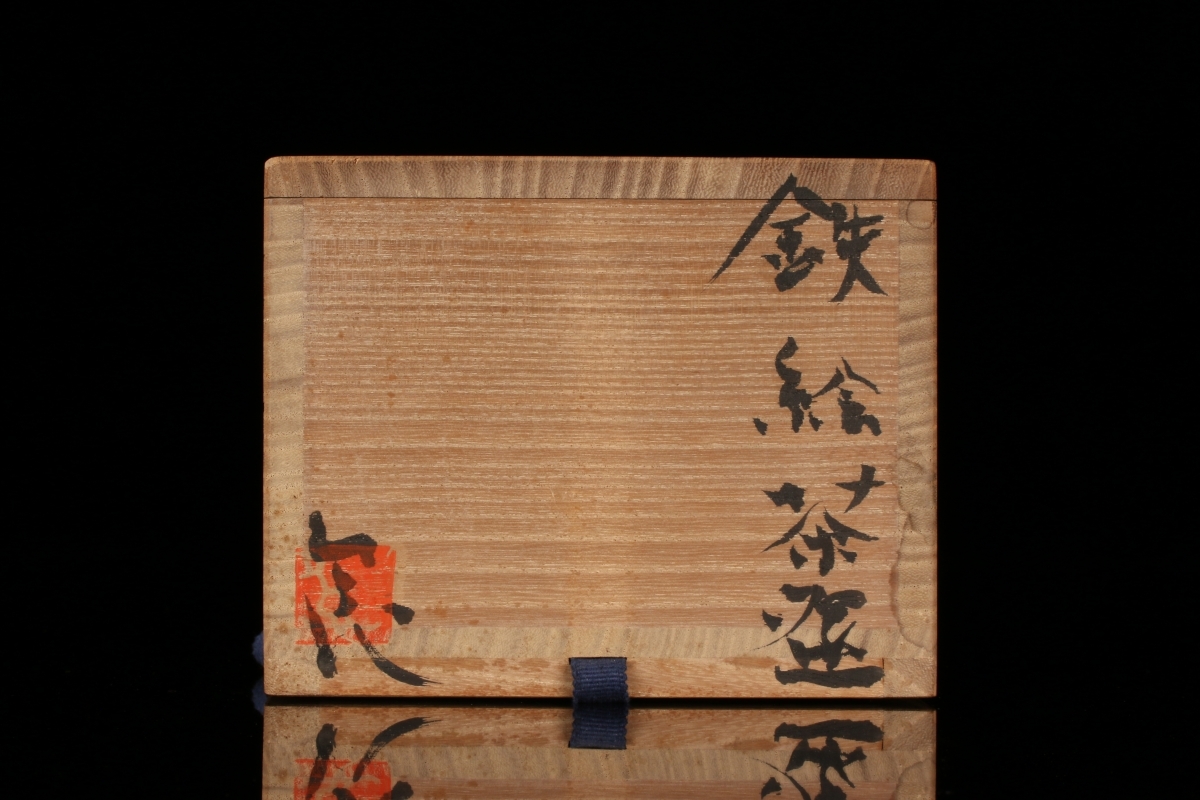 鉄絵茶盌